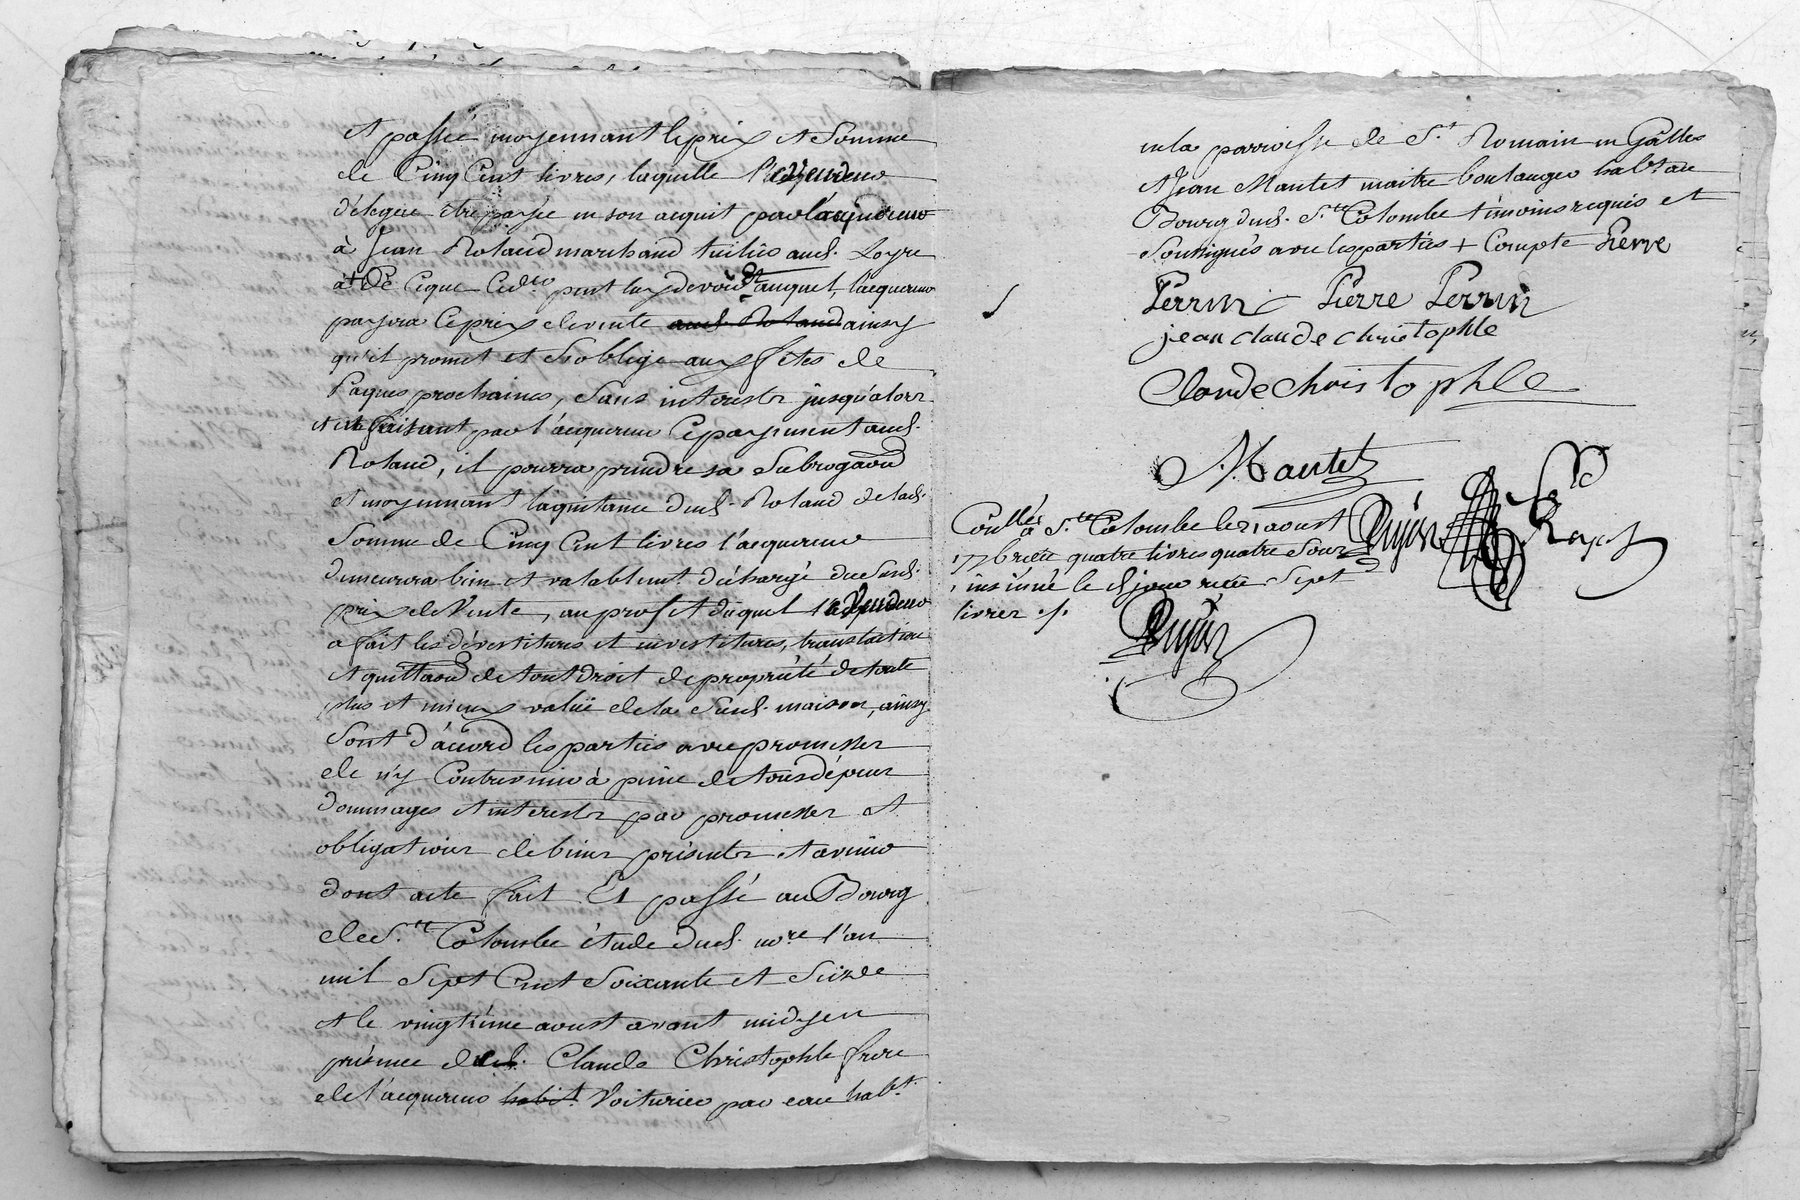 et passée moyennant le prix et Somme
de Cinq Cent livres, laquelle le vendeur
délegue être payée en son acquit par l'acquereur
à Jean Roland marchand tuilier aud. Loyre
à + De Ceque Ced. peut luy devoir et auquel, lacquereur
payera Ceprix devente aud. Roland ainsy
qu'il promet et Soblige aux fêtes de
Paques prochaines, Sans interests jusqu'alors
et en faisant par l'acquereur Cepayement aud.
Roland, il pourra prendre sa Subrogaõn
et moyennant laquitance dud. Roland de lad.
Somme de Cinq Cent livres l'acquereur
demeurera bien et valablemt. déchargé dususd.
prix deVente, au profit duquel le Vendeur
a fait les dévestitures et investitures, translation
et quittaõn de tout droit de propriété de toute
plus et mieux value de la Susd. maison, ainsy
Sont d'acord les parties avec promesses
de n'y Contrevenir à peine de tous dépens
dommages et interests par promesses et
obligations de biens présents et avenir
dont acte fait Et passé au Bourg
de S.te Colombe étude dud. no.re l'an
mil Sept Cent Soixante et Seize
et le vingtième aoust avant midy en
présence de Claude Christophle frere
de l'acquereur habit. Voiturier par eau hab.t
en la parroisse de S.t Romain en Galles
et Jean Mantet maitre boulanger hab.t au
Bourg dud. S.te Colombe témoins requis et
Soussignés avec les parties + Compte Pierre
Perrin Pierre Perrin
jean claude christophle
Claude christophle
J. Mantet
Con.llé à S.te Colombe le 21 aoust
177 6 reçu quatre livres quatre Sous
insinué le d jour reçu Sept
livres ./.
Dujon
Dujon